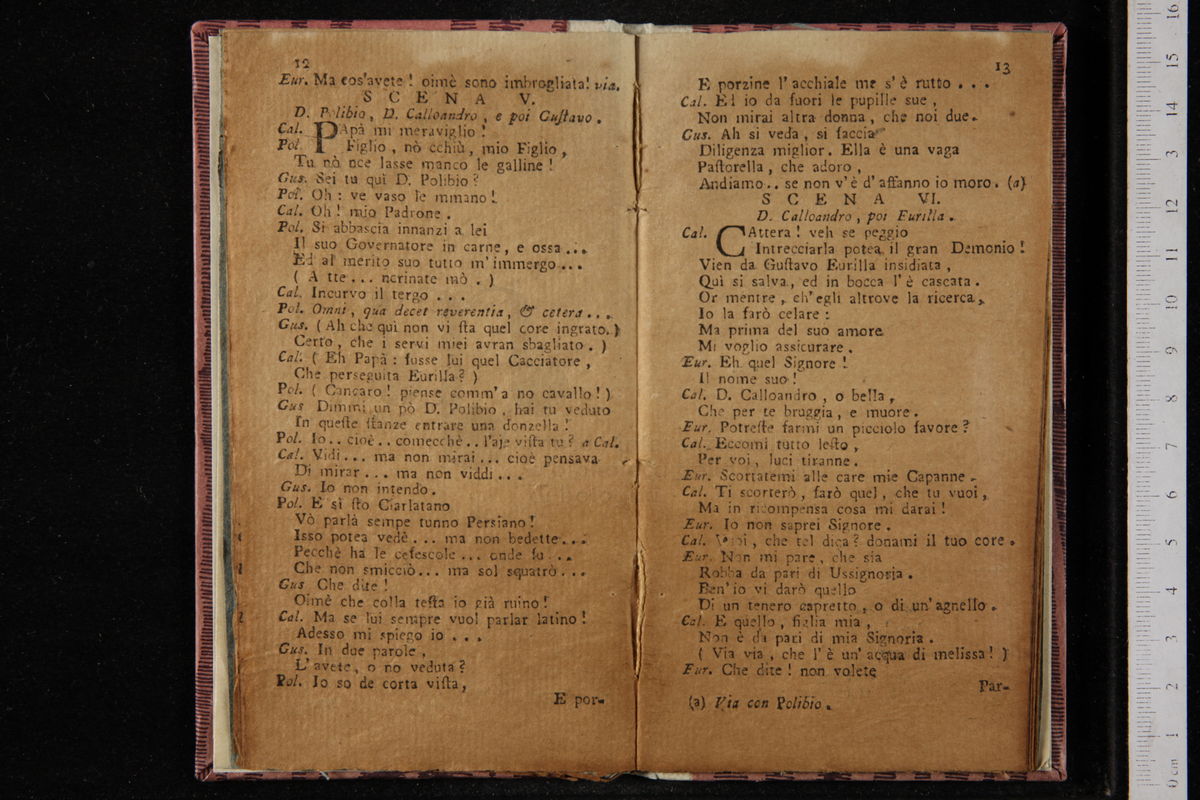 12
Eur. Ma cos'avete! oimè sono imbrogliata! via.
S C E N A V.
D. Polibio, D. Calloandro, e poi Guſtavo.
Cal. PApà mi meraviglio!
Pol. Figlio, nò cchiù, mio Figlio,
Tu nò nce laſſe manco le galline!
Gus. Sei tu quì D. Polibio?
Pol. Oh: ve vaſo le mmano!
Cal. Oh! mio Padrone.
Pol. Si abbaſcia innanzi a lei
Il ſuo Governatore in carne, e oſſa...
Ed al merito ſuo tutto m'immergo...
( A tte... ncrinate mò. )
Cal. Incurvo il tergo...
Pol. Omni, qua decet reverentia, & cetera...
Gus. (Ah che quì non vi ſta quel core ingrato.)
Certo, che i ſervi miei avran sbagliato. )
Cal. ( Eh Papà: foſſe lui quel Cacciatore,
Che perſeguita Eurilla? )
Pol. ( Cancaro! pienſe comm'a no cavallo! )
Gus Dimmi un pò D. Polibio, hai tu veduto
In queſte ſtanze entrare una donzella!
Pol. Io.. cioè.. comecchè.. l'aje viſta tu? a Cal.
Cal. Vidi... ma non mirai... cioè penſava
Di mirar... ma non viddi...
Gus. Io non intendo.
Pol. E sì ſto Ciarlatano
Vò parlà ſempe tunno Perſiano!
Iſſo potea vedè... ma non bedette...
Pecchè ha le ceſeſcole... onde fu...
Che non smicciò... ma ſol squatrò...
Gus Che dite!
Oimè che colla teſta io già ruino!
Cal. Ma ſe lui ſempre vuol parlar latino!
Adeſſo mi ſpiego io...
Gus. In due parole,
L'avete, o no veduta?
Pol. Io ſo de corta viſta,
E por-
13
E porzine l'acchiale me s'è rutto...
Cal. Ed io da fuori le pupille ſue,
Non mirai altra donna, che noi due.
Gus. Ah si veda, si faccia
Diligenza miglior. Ella è una vaga
Paſtorella, che adoro,
Andiamo.. se non v'è d'affanno io moro. (a)
S C E N A VI.
D. Calloandro, poi Eurilla.
Cal. CAttera! veh se peggio
Intrecciarla potea il gran Demonio!
Vien da Guſtavo Eurilla insidiata,
Quì si salva, ed in bocca l'è cascata.
Or mentre, ch'egli altrove la ricerca,
Io la farò celare:
Ma prima del suo amore
Mi voglio assicurare.
Eur. Eh quel Signore!
Il nome suo!
Cal. D. Calloandro, o bella,
Che per te bruggia, e muore.
Eur. Potreſte farmi un picciolo favore?
Cal. Eccomi tutto leſto,
Per voi, luci tiranne.
Eur. Scortatemi alle care mie Capanne.
Cal. Ti scorterò, farò quel, che tu vuoi,
Ma in ricompensa cosa mi darai!
Eur. Io non saprei Signore.
Cal. Vuoi, che tel dica? donami il tuo core.
Eur. Non mi pare, che sia
Robba da pari di Ussignoria.
Ben'io vi darò quello
Di un tenero capretto, o di un'agnello.
Cal. E quello, figlia mia,
Non è da pari di mia Signoria.
( Via via, che l'è un'acqua di melissa! )
Eur. Che dite! non volete
Par-
(a) Via con Polibio.
16
15
14
13
12
11
10
9
8
7
6
5
4
3
2
1
0 cm